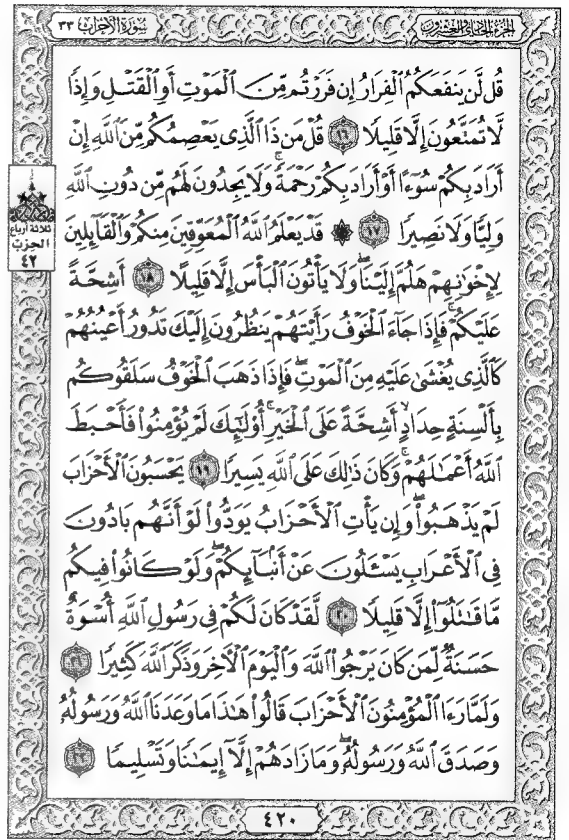 الجزء الحادي والعشرون
سورة الأحزاب ٣٣
قُل لَّن يَنفَعَكُمُ ٱلْفِرَارُ إِن فَرَرْتُم مِّنَ ٱلْمَوْتِ أَوِ ٱلْقَتْلِ وَإِذًا
لَّا تُمَتَّعُونَ إِلَّا قَلِيلًا ١٦ قُلْ مَن ذَا ٱلَّذِى يَعْصِمُكُم مِّنَ ٱللَّهِ إِنْ
أَرَادَ بِكُمْ سُوٓءًا أَوْ أَرَادَ بِكُمْ رَحْمَةً ۚ وَلَا يَجِدُونَ لَهُم مِّن دُونِ ٱللَّهِ
وَلِيًّا وَلَا نَصِيرًا ١٧ ۞ قَدْ يَعْلَمُ ٱللَّهُ ٱلْمُعَوِّقِينَ مِنكُمْ وَٱلْقَآئِلِينَ
لِإِخْوَٰنِهِمْ هَلُمَّ إِلَيْنَا ۖ وَلَا يَأْتُونَ ٱلْبَأْسَ إِلَّا قَلِيلًا ١٨ أَشِحَّةً
عَلَيْكُمْ ۖ فَإِذَا جَآءَ ٱلْخَوْفُ رَأَيْتَهُمْ يَنظُرُونَ إِلَيْكَ تَدُورُ أَعْيُنُهُمْ
كَٱلَّذِى يُغْشَىٰ عَلَيْهِ مِنَ ٱلْمَوْتِ ۖ فَإِذَا ذَهَبَ ٱلْخَوْفُ سَلَقُوكُم
بِأَلْسِنَةٍ حِدَادٍ أَشِحَّةً عَلَى ٱلْخَيْرِ ۚ أُو۟لَٰٓئِكَ لَمْ يُؤْمِنُوا۟ فَأَحْبَطَ
ٱللَّهُ أَعْمَٰلَهُمْ ۚ وَكَانَ ذَٰلِكَ عَلَى ٱللَّهِ يَسِيرًا ١٩ يَحْسَبُونَ ٱلْأَحْزَابَ
لَمْ يَذْهَبُوا۟ ۖ وَإِن يَأْتِ ٱلْأَحْزَابُ يَوَدُّوا۟ لَوْ أَنَّهُم بَادُونَ
فِى ٱلْأَعْرَابِ يَسْـَٔلُونَ عَنْ أَنۢبَآئِكُمْ ۖ وَلَوْ كَانُوا۟ فِيكُم
مَّا قَٰتَلُوٓا۟ إِلَّا قَلِيلًا ٢٠ لَّقَدْ كَانَ لَكُمْ فِى رَسُولِ ٱللَّهِ أُسْوَةٌ
حَسَنَةٌ لِّمَن كَانَ يَرْجُوا۟ ٱللَّهَ وَٱلْيَوْمَ ٱلْأَخِرَ وَذَكَرَ ٱللَّهَ كَثِيرًا ٢١
وَلَمَّا رَءَا ٱلْمُؤْمِنُونَ ٱلْأَحْزَابَ قَالُوا۟ هَٰذَا مَا وَعَدَنَا ٱللَّهُ وَرَسُولُهُۥ
وَصَدَقَ ٱللَّهُ وَرَسُولُهُۥ ۚ وَمَا زَادَهُمْ إِلَّآ إِيمَٰنًا وَتَسْلِيمًا ٢٢
ثلاثة أرباع
الحزب
٤٢
٤٢٠